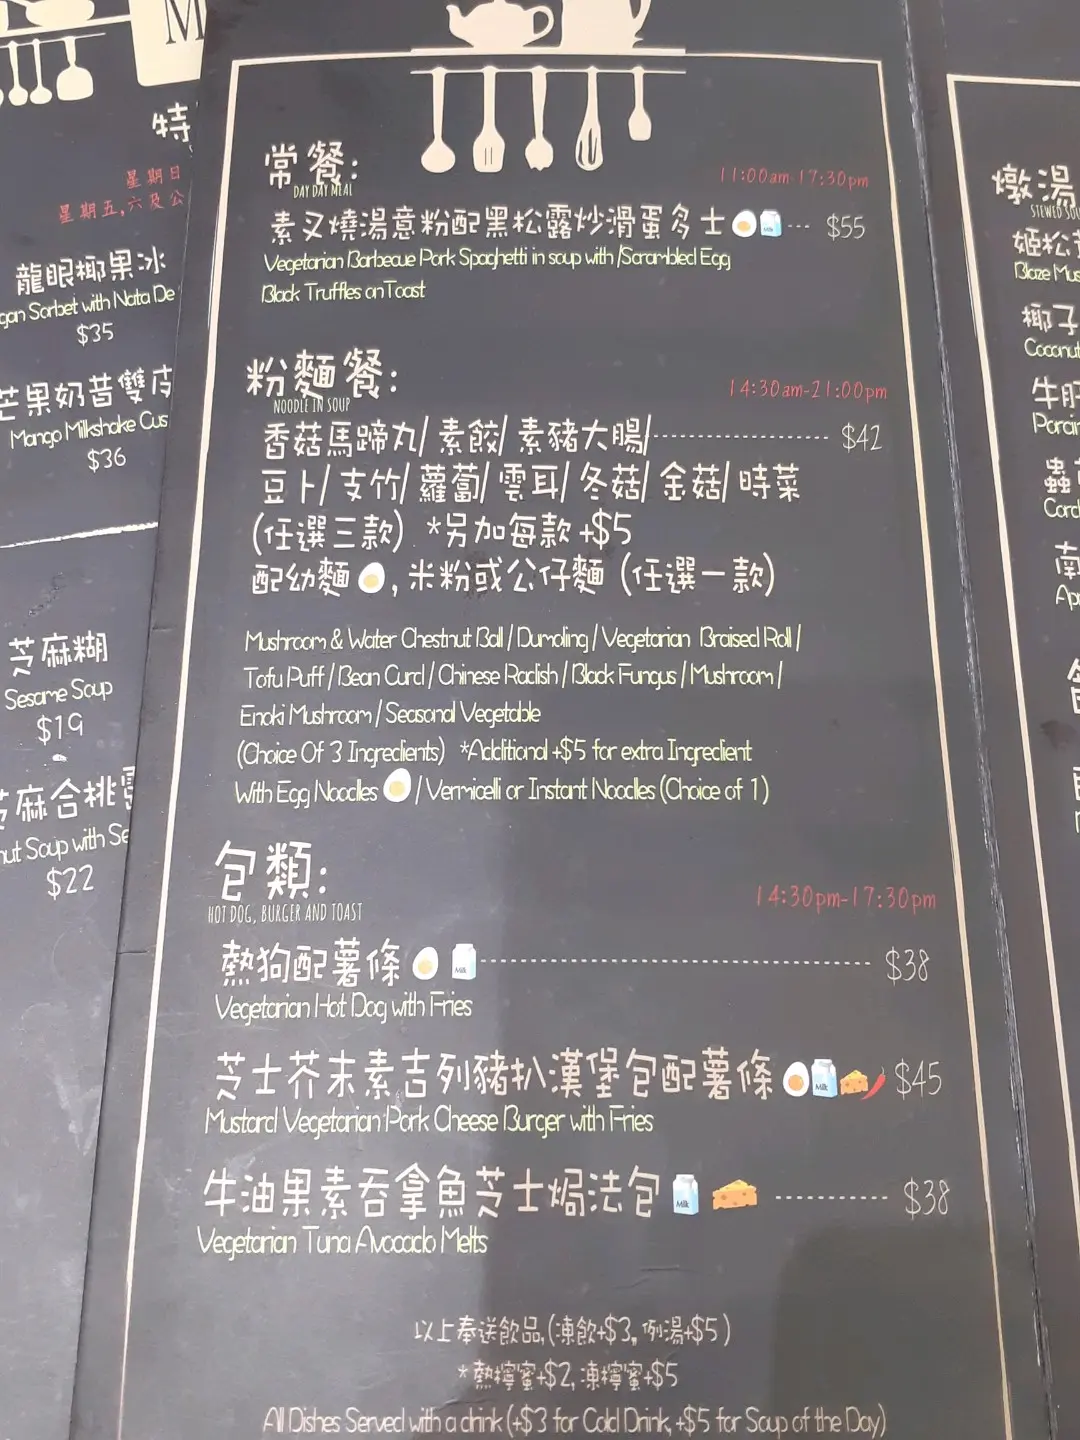 M
特
星期日
星期五,六及公
龍眼椰果冰
gan Sorbet with Nata De
$35
芒果奶昔雙皮
Mango Milkshake Cus
$36
芝麻糊
Sesame Soup
$19
芝麻合桃露
nut Soup with Se
$22
常餐:
DAY DAY MEAL
11:00am-17:30pm
素叉燒湯意粉配黑松露炒滑蛋多士 Milk --- $55
Vegetarian Barbecue Pork Spaghetti in soup with /Scrambled Egg
Black Truffles onToast
粉麵餐:
NOODLE IN SOUP
14:30am-21:00pm
香菇馬蹄丸/ 素餃/ 素豬大腸/ $42
豆卜/ 支竹/ 蘿蔔/ 雲耳/ 冬菇/ 金菇/ 時菜
(任選三款) *另加每款 +$5
配幼麵 , 米粉或公仔麵 (任選一款)
Mushroom & Water Chestnut Ball / Dumpling / Vegetarian Braised Roll /
Tofu Puff / Bean Curd / Chinese Radish / Black Fungus / Mushroom /
Enoki Mushroom / Seasonal Vegetable
(Choice Of 3 Ingredients) *Additional +$5 for extra Ingredient
With Egg Noodles / Vermicelli or Instant Noodles (Choice of 1)
包類:
HOT DOG, BURGER AND TOAST
14:30pm-17:30pm
熱狗配薯條 Milk $38
Vegetarian Hot Dog with Fries
芝士芥末素吉列豬扒漢堡包配薯條 Milk $45
Mustard Vegetarian Pork Cheese Burger with Fries
牛油果素吞拿魚芝士焗法包 Milk $38
Vegetarian Tuna Avocado Melts
以上奉送飲品,(凍飲+$3, 例湯+$5)
*熱檸蜜+$2, 凍檸蜜+$5
All Dishes Served with a drink (+$3 for Cold Drink, +$5 for Soup of the Day)
燉湯
STEWED SOU
姬松茸
Blaze Mus
椰子
Coconut
牛肝
Porcin
蟲草
Cord
南
Ap